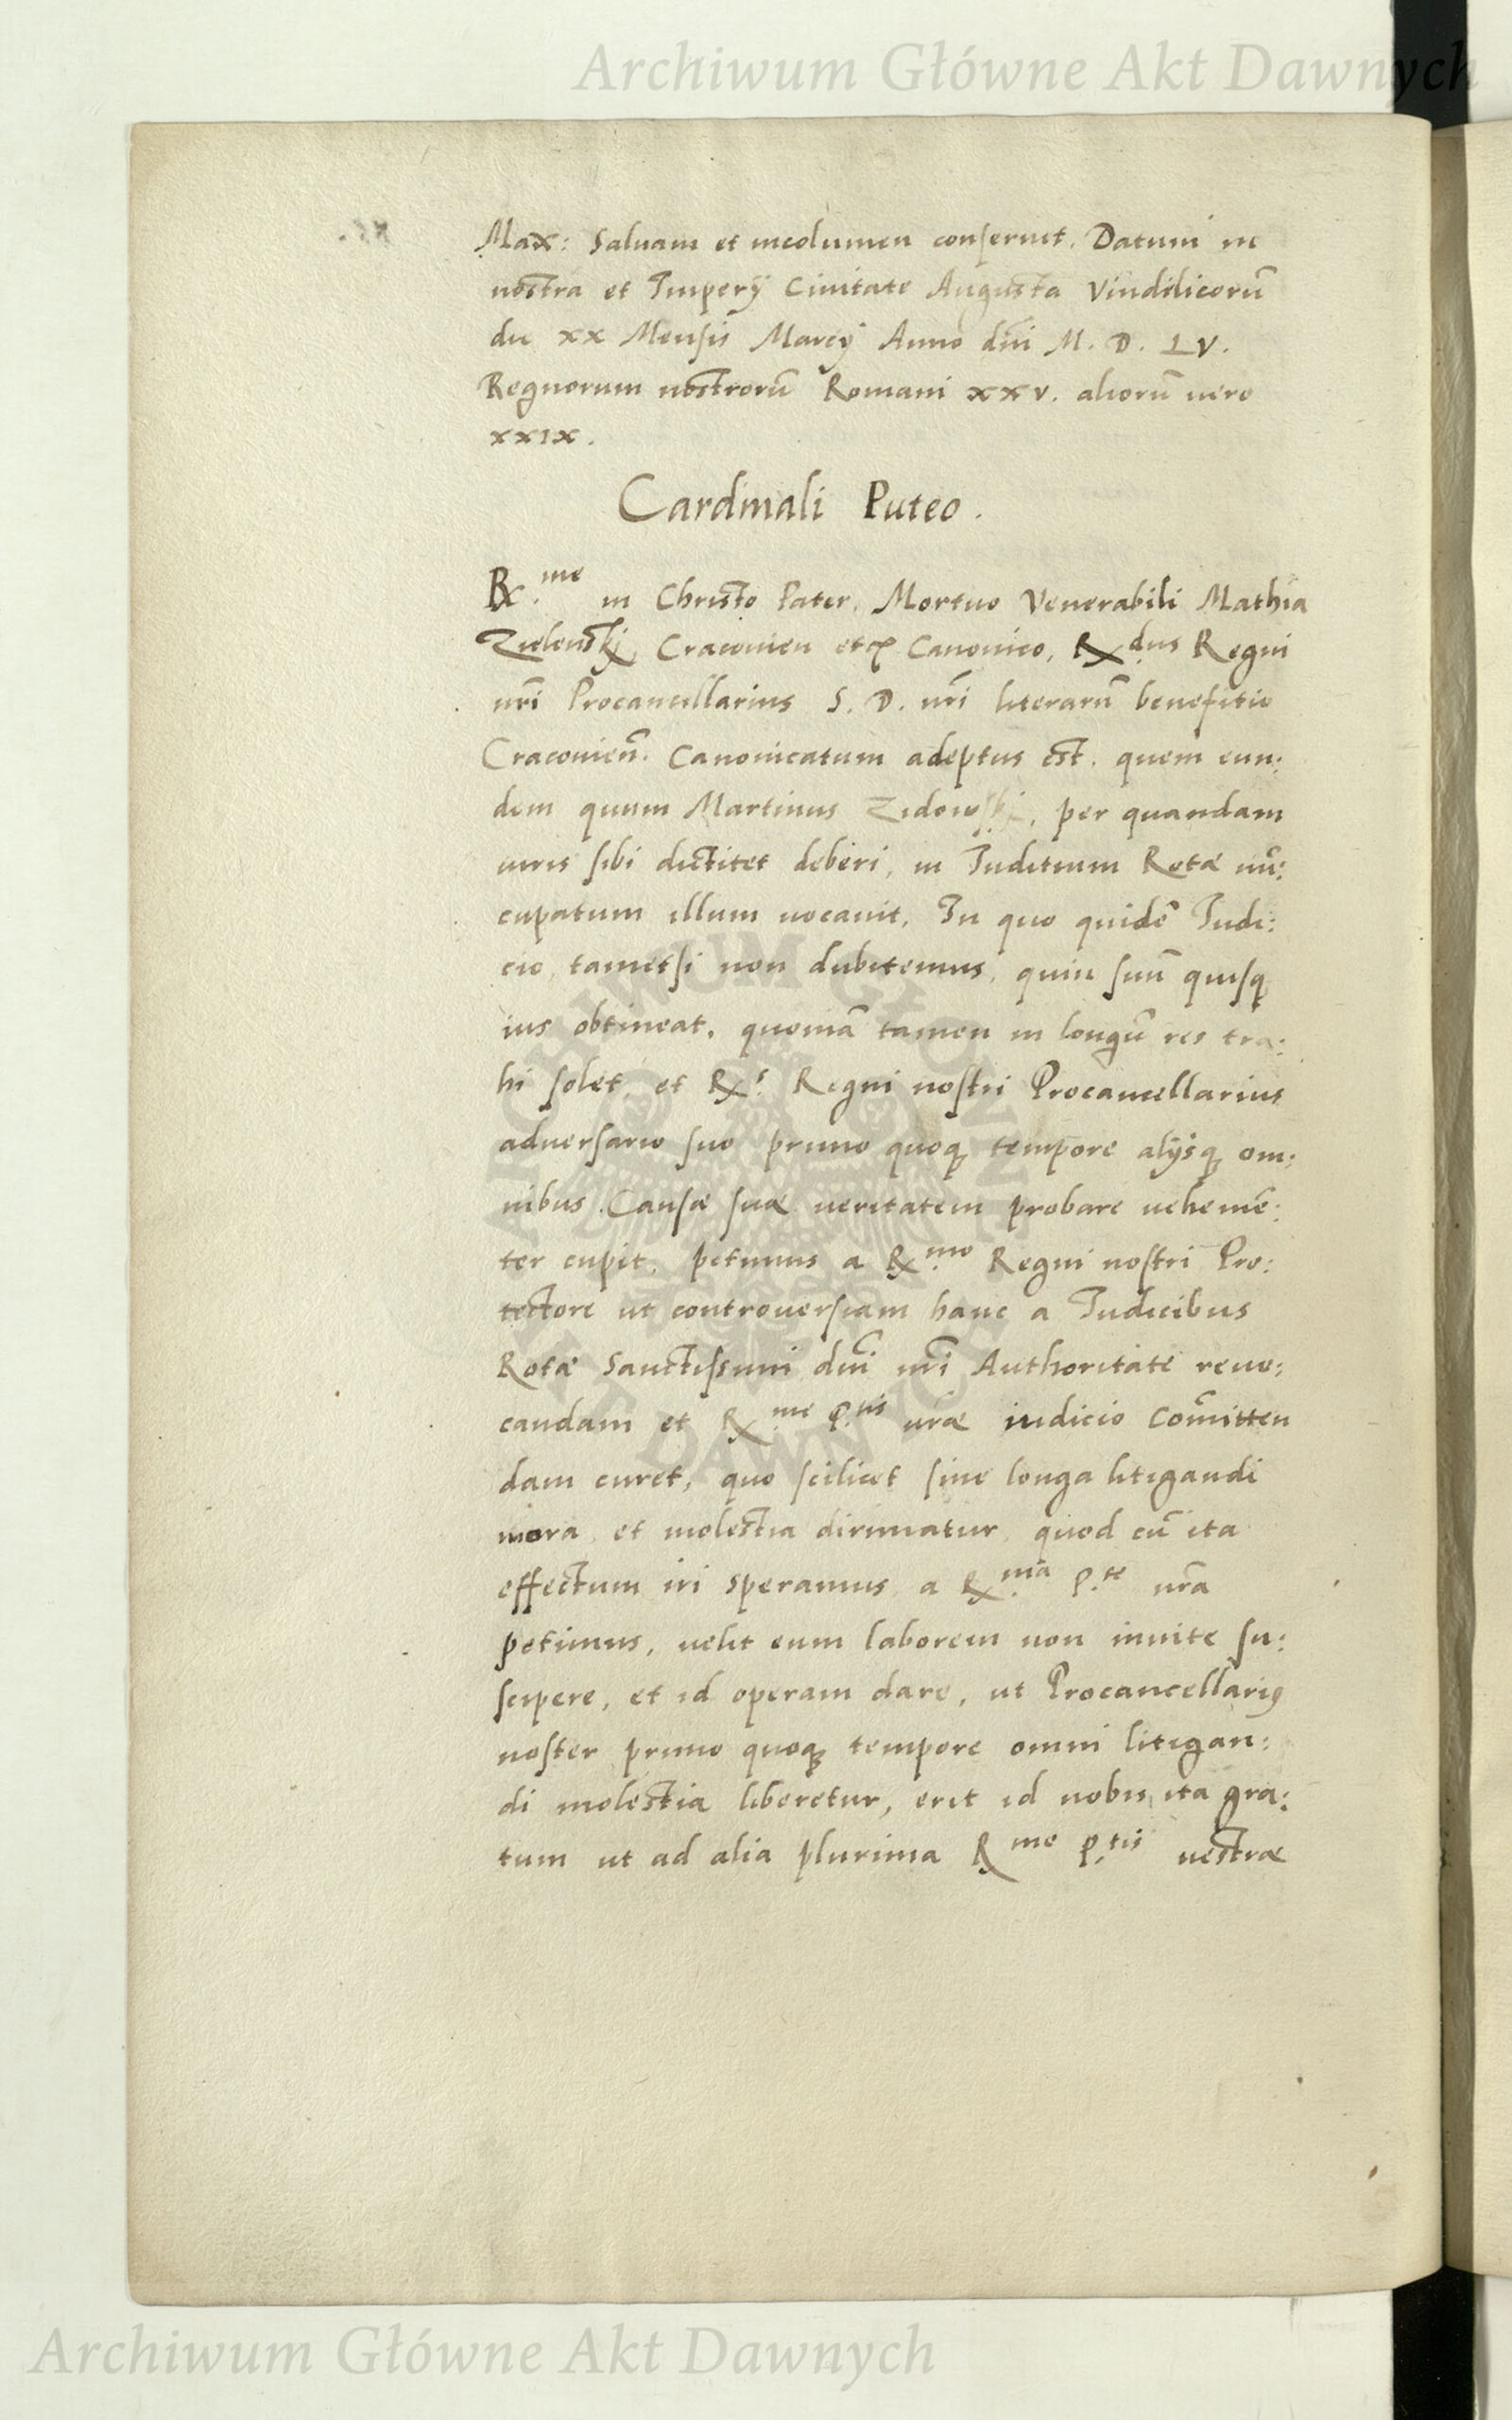 Archiwum Główne Akt Dawnych
Max: Saluam et incolumen conseruet. Datum in
nostra et Imperÿ Ciuitate Augusta Vindelicorū
die xx Mensis Marcÿ Anno dn̄i M. D. LV.
Regnorum nostrorū Romani xxv. aliorū uero
xxix.
Cardinali Puteo.
Rx.me in Christo Pater, Mortuo Venerabili Mathia
Zielenskj Cracouien etc Canonico, Rx dus Regni
nr̄i Procancellarius S. D. nr̄i literarū benefitio
Cracouien̄. Canonicatum adeptus est. quem eun:
dem quum Martinus Zidowskj, per quandam
iuris sibi dictitet deberi, in Juditium Rotæ nū:
cupatum illum uocauit. In quo quidē Judi:
cio tametsi non dubitemus, quin suū quisq
ius obtineat, quoniā tamen in longū res tra:
hi solet, et Rx.s Regni nostri Procancellarius
aduersario suo primo quoq tempore alÿsq om:
nibus Causæ suæ ueritatem probare uehemē:
ter cupit, petimus a Rx.mo Regni nostri Pro:
tectore ut controuersiam hanc a Judicibus
Rotæ Sanctissimi dn̄i nr̄i Authoritate reuo:
candam et Rx.me P.tis ur̄æ iudicio Com̄itten
dam curet, quo scilicet sine longa litigandi
mora et molestia dirimatur, quod cū ita
effectum iri speramus a Rx.ma P.te ur̄a
petimus, uelit eum laborem non inuite su:
scipere, et id operam dare, ut Procancellarig
noster primo quoq tempore omni litigan:
di molestia liberetur, erit id nobis ita gra:
tum ut ad alia plurima Rx me P.tis uestræ
Archiwum Główne Akt Dawnych